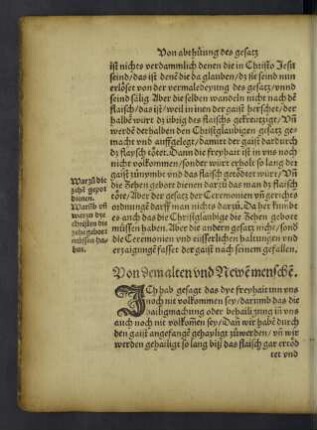 Von abthüung des gesatz
ist nichts verdammlich denen die in Christo Jesu
seind/das ist denẽ die da glauben/dz sie seind nun
erlöset von der vermaledeyung des gesatz/vnnd
seind sälig Aber die selben wandeln nicht nach dẽ
flaisch/das ist/weil in inen der gaist herschet/der
halbẽ würt dz übrig des flaischs gekreütziget/Vñ
werdẽ derhalben den Christglaubigen gesatz ge-
macht vnd auffgelegt/damitt der gaist dardurch
dz flaysch tötet. Dann die freyhait ist in vns noch
nicht volkommen/sonder würt erholt so lang der
gaist zůnymbt vnd das flaisch getödtet würt/Vñ
die Zehen gebott dienen dar zů das man dz flaisch
töte/Aber der gesatz der Ceremonien vñ gerichts
ordnung darff man nichts dar zů. Da her kumbt
es auch das die Christglaubige die Zehen gebott
müssen haben. Aber die andern gesatz nicht/sond
die Ceremonien vnd eüsserlichen haltungen vnd
erzaigung gasset der gaist nach seinem gefallen.
Warzů die
zehẽ gepot
dienen.
Warũb vñ
warzů dye
christen die
zehẽ gebott
müssen ha-
ben.
Von dem alten vnd Newẽ menschẽ.
ICh hab gesagt das dye freyhait inn vns
noch nit volkommen sey/darumb das die
hailigmachung oder behailigũg in vns
auch noch nit volkomẽ sey/Dañ wir habẽ durch
den gaist angefangẽ gehayligt zůwerden/vñ wir
werden gehailigt so lang biß das flaisch gar ertöd
tet vnd